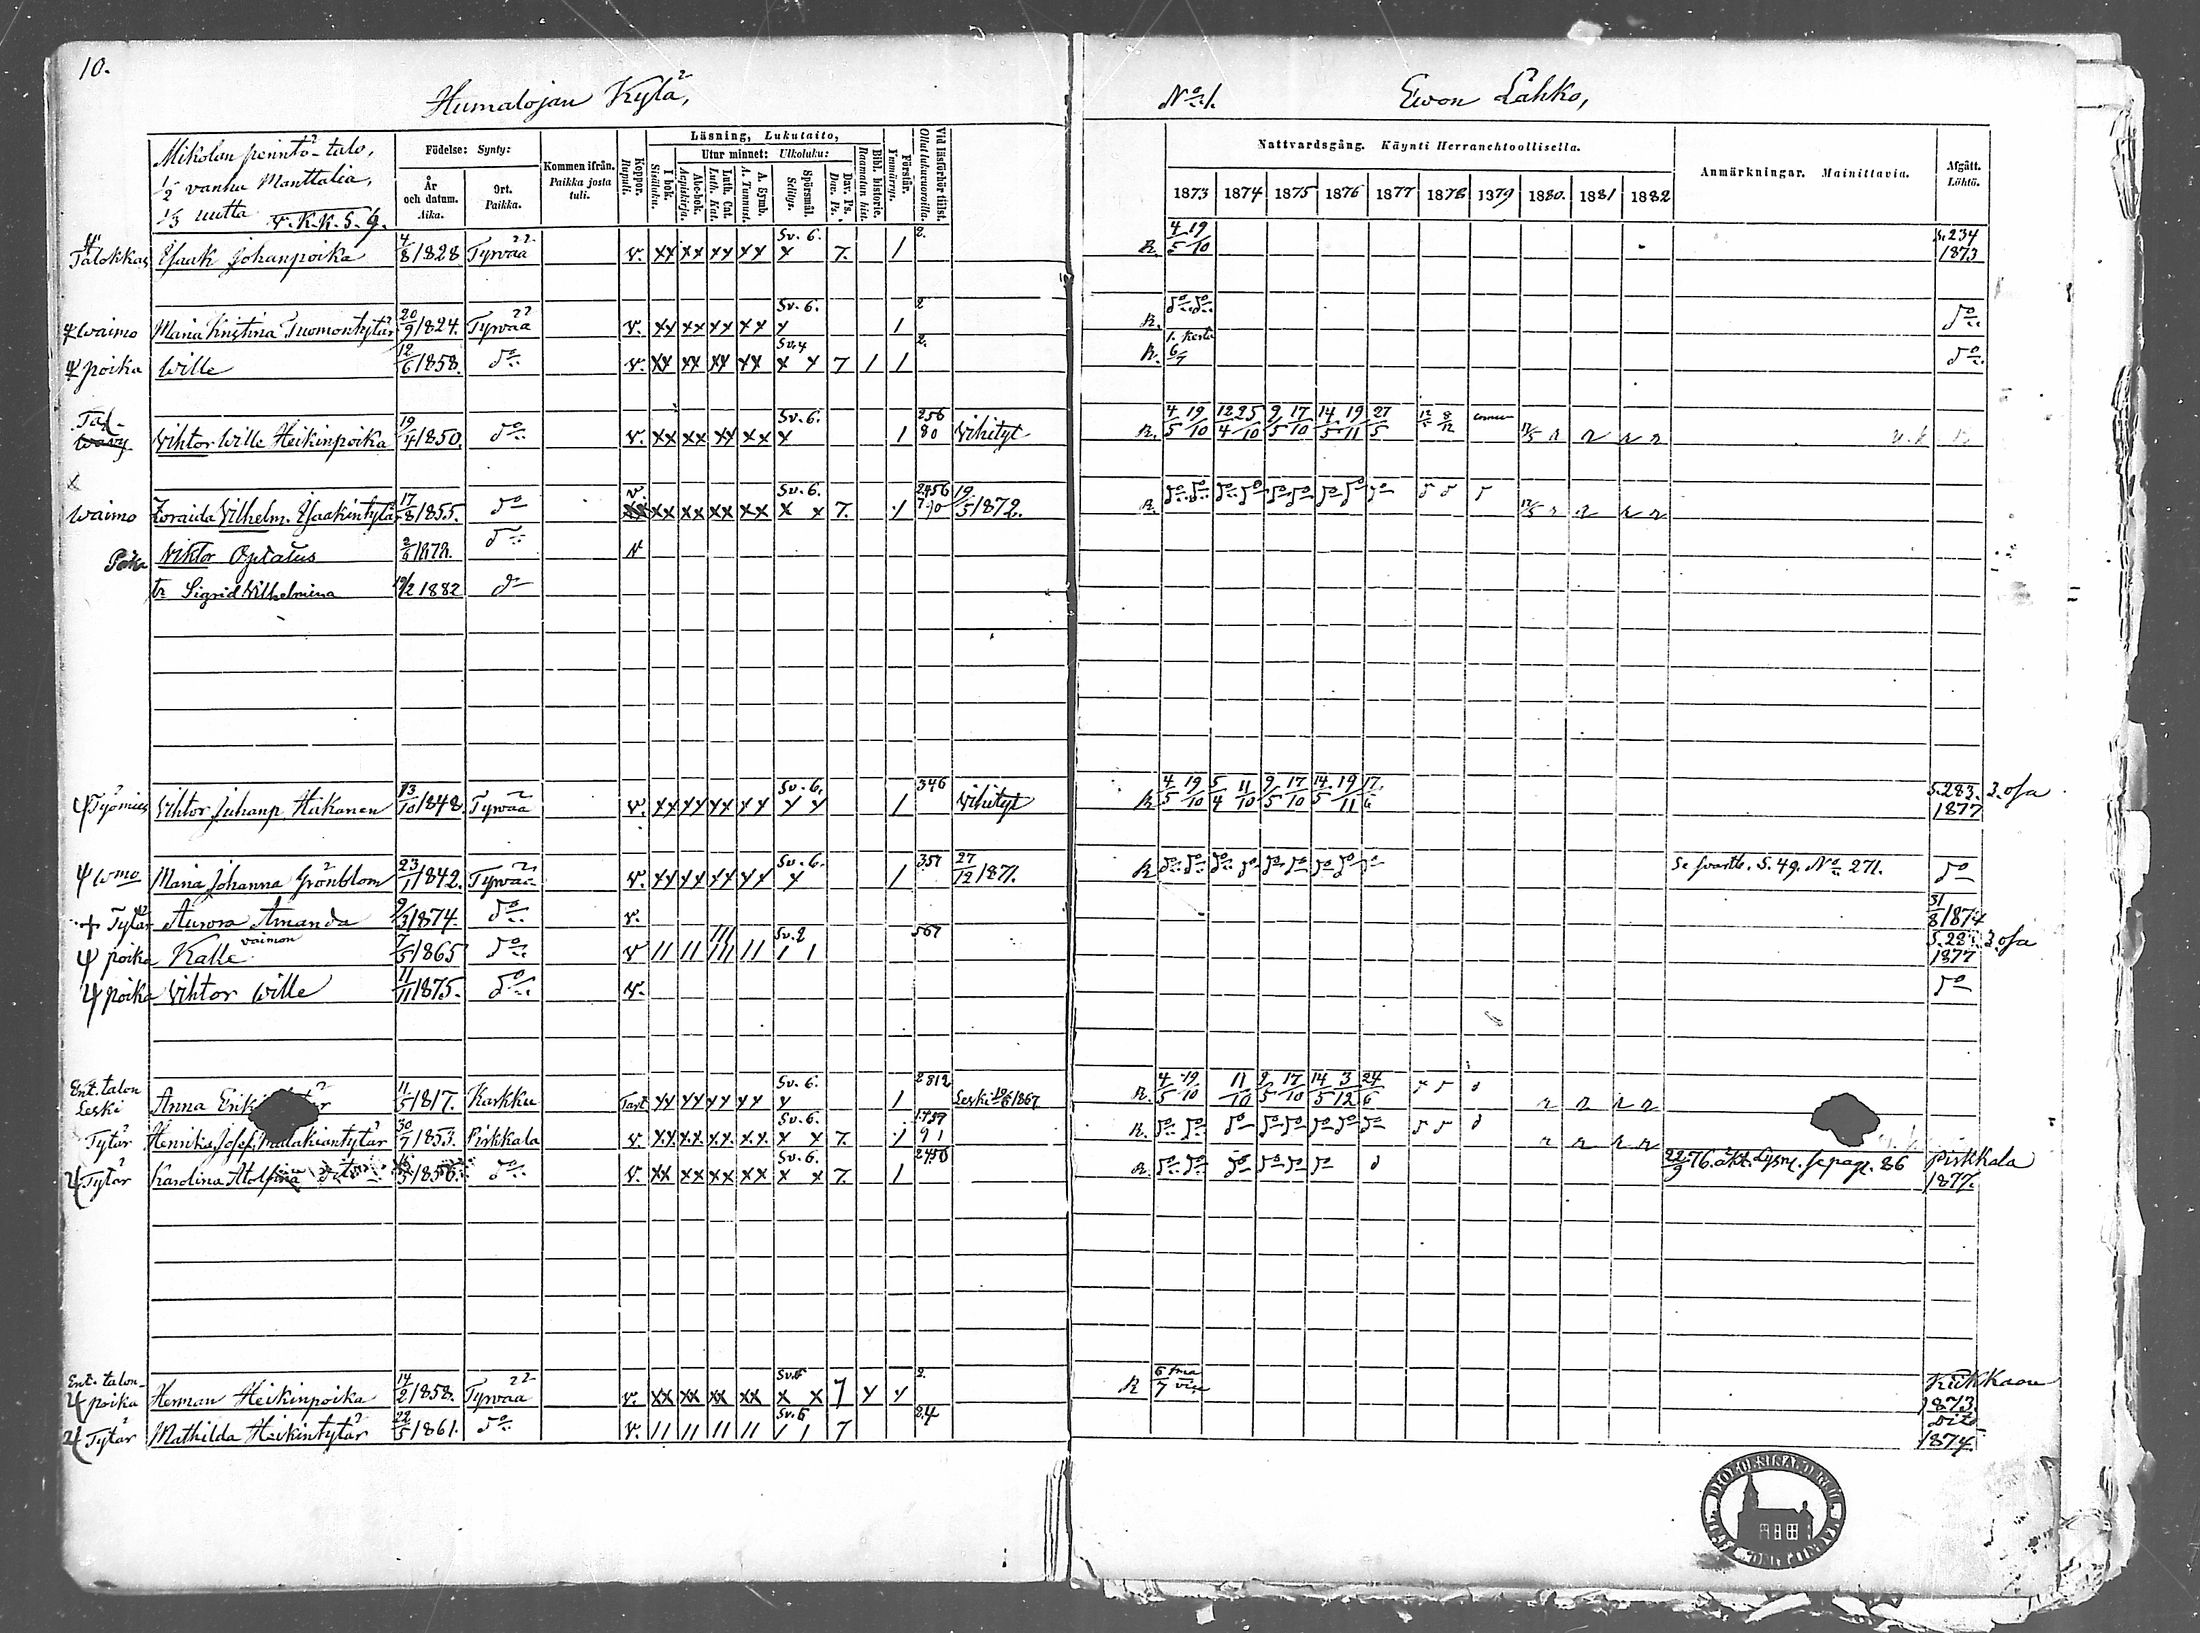 10.
Humalojan Kylä,
No 1.
Ewon Lahko,
Mikolan perintö-talo,
1/2 vanha Manttalia,
1/3 uutta V.K.K.S. 9.
Födelse: Synty:
År och datum. Aika.
Ort. Paikka.
Kommen ifrån. Paikka josta tuli.
Koppor. Rupuli.
Läsning, Lukutaito,
I bok. Sisäluku.
Utur minnet: Ulkoluku:
Abc-bok. Aapiskirja.
Luth. Cat. Luth. Kat.
A. Symb. A. Tunnust.
Spörsmål. Selitys.
Dav. Ps. Dav. Ps.
Bibl. historie. Raamatun hist.
Förstår. Ymmärrys.
Vid läsförhör tillst. Ollut lukuwuoroilla.
Nattvardsgång. Käynti Herranehtoollisella.
1873 1874 1875 1876 1877 1878 1879 1880. 1881 1882
Anmärkningar. Mainittavia.
Afgått. Lähtö.
Talokkas Esaak Johanpoika 4/8 1828 Tyrvää v. xx xx xx xx Sv. 6. x 7. 1 2. R. 4/5 19/10 S. 234 1873
Waimo Maria Kristina Tuomontytär 20/9 1824. Tyrvää v. xx xx xx xx Sv. 6. x 1 2 R. do do do
poika Wille 12/6 1858. do v. xx xx xx xx Sv. 4 x x 7 1 1 2. R. 1. kerta 6/7 do
Tal. Vihtor Wille Heikinpoika 19/4 1850. do v. xx xx xx xx Sv. 6. x 1 256 80 Vihityt R. 4/5 19/10 12/4 25/10 9/5 17/10 14/5 19/11 27/5
Waimo Zoraida Vilhelm. Esaakintytär 17/8 1855. do v. xx xx xx xx Sv. 6. x x 7. 1 19/5 1872. R. do do do do do do do do do
Poika Viktor Optatus 2/6 1878. do v
tr Sigrid Vilhelmina 19/2 1882 do
Työmies Vihtor Juhanp. Heikanen 13/10 1848 Tyrvää v. xx xx xx xx Sv. 6. x x 1 346 Vihityt R 4/5 19/10 5/4 11/10 9/5 17/10 14/5 19/11 17/6 S. 283. 2. osa 1877
Wmo Maria Johanna Grönblom 23/1 1842. Tyrvää v. xx xx xx xx Sv. 6. x 1 357 27/12 1871. R do do do do do do do do do S. 49. No 271. do
+ Tytär Aurora Amanda 9/3 1874. do v. 31/8 1874
poika Kalle vaimon 7/5 1865 do v 11 11 111 11 Sv. 2 1 1 567 2. osa 1877
poika Vihtor Wille 11/11 1875. do v. do
Ent. talon
Leski Anna 11/5 1817. Karkku xx xx xx xx Sv. 6. x 1 2812 Leski 1867 R. 4/5 19/10 11/10 9/5 17/10 14/5 3/12 24/6
Tytär Henrika Josef. Malakiantytär 30/7 1853. Pirkkala v. xx xx xx xx Sv. 6. x x 7. 1 91 R. do do do do do do do do
Tytär Karolina Atolfina 1856. do v. xx xx xx xx Sv. 6. x x 7. 1 R. do do do do do do 22/9 76. se pag. 86 Pirkkala 1877.
Ent. talon-
poika Herman Heikinpoika 14/2 1858. Tyrvää v. xx xx xx xx x x 7 x x 2. R 6/7 Kiikkaan 1873.
Tytär Mathilda Heikintytär 22/5 1861. do v. 11 11 11 11 1 1 7 24 Dito 1874.